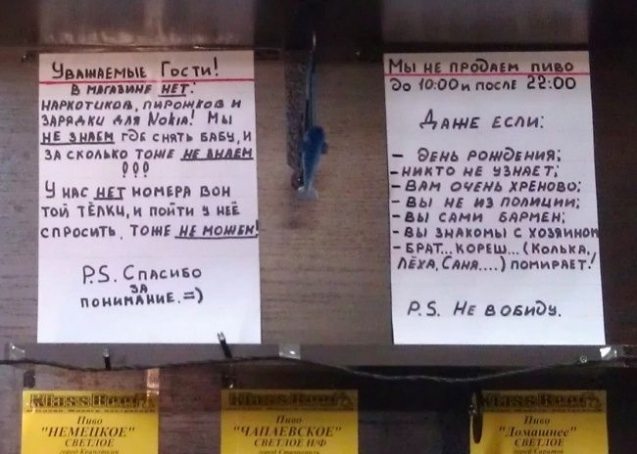 Уважаемые Гости!
В магазине нет:
наркотиков, пирожков и
зарядки для Nokia! Мы
не знаем где снять бабу, и
за сколько тоже не знаем
!!!
У нас нет номера вон
той тёлки, и пойти у неё
спросить тоже не можем!
P.S. Спасибо
за
понимание. =)
Мы не продаем пиво
до 10:00 и после 22:00
Даже если:
- День рождения;
- никто не узнает;
- Вам очень хреново;
- Вы не из полиции;
- Вы сами бармен;
- Вы знакомы с хозяином
- Брат...кореш...(Колька,
Лёха, Саня....) помирает!
P.S. Не в обиду.
Klass Beer
Пиво
"НЕМЕЦКОЕ"
СВЕТЛОЕ
Klass Beer
Пиво
"ЧАПАЕВСКОЕ"
СВЕТЛОЕ Н/Ф
Klass Beer
Пиво
"Домашнее"
СВЕТЛОЕ